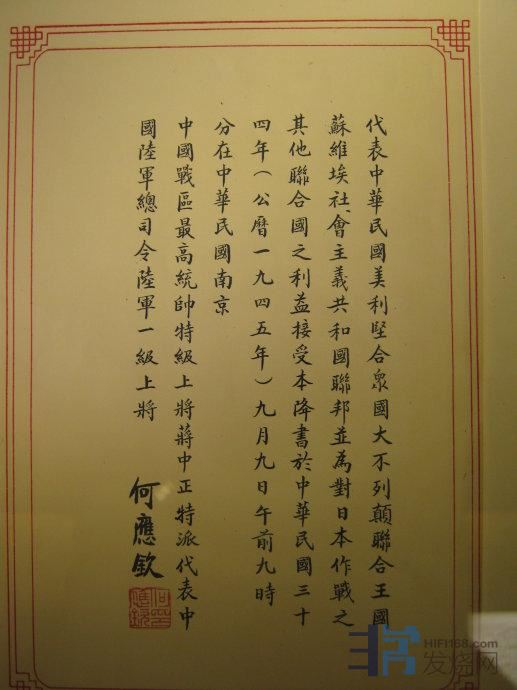 代表中華民國美利堅合眾國大不列顛聯合王國
蘇維埃社會主義共和國聯邦並為對日本作戰之
其他聯合國之利益接受本降書於中華民國三十
四年（公曆一九四五年）九月九日午前九時
分在中華民國南京
中國戰區最高統帥特級上將蔣中正特派代表中
國陸軍總司令陸軍一級上將
何應欽
何應欽印
HIFI168.com
發烧网